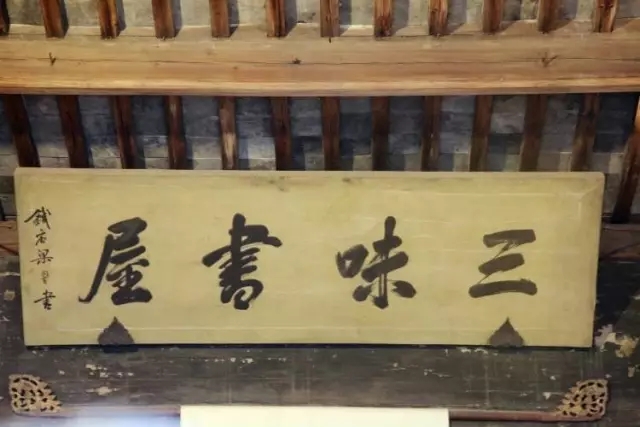 三味書屋
錢唐梁同書